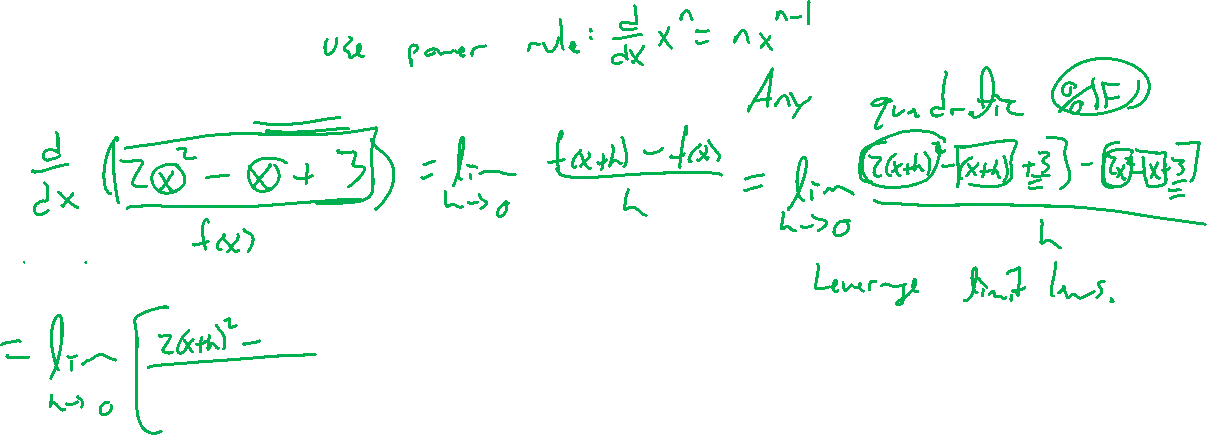 use power rule: d/dx x^n = nx^(n-1)
Any quadratic % IF
d/dx (2x² - x + 3) = lim h→0 f(x+h) - f(x) / h = lim h→0 [2(x+h)² - (x+h) + 3] - [2x² - x + 3] / h
f(x)
Leverage limit laws.
= lim h→0 [ 2(x+h)² -